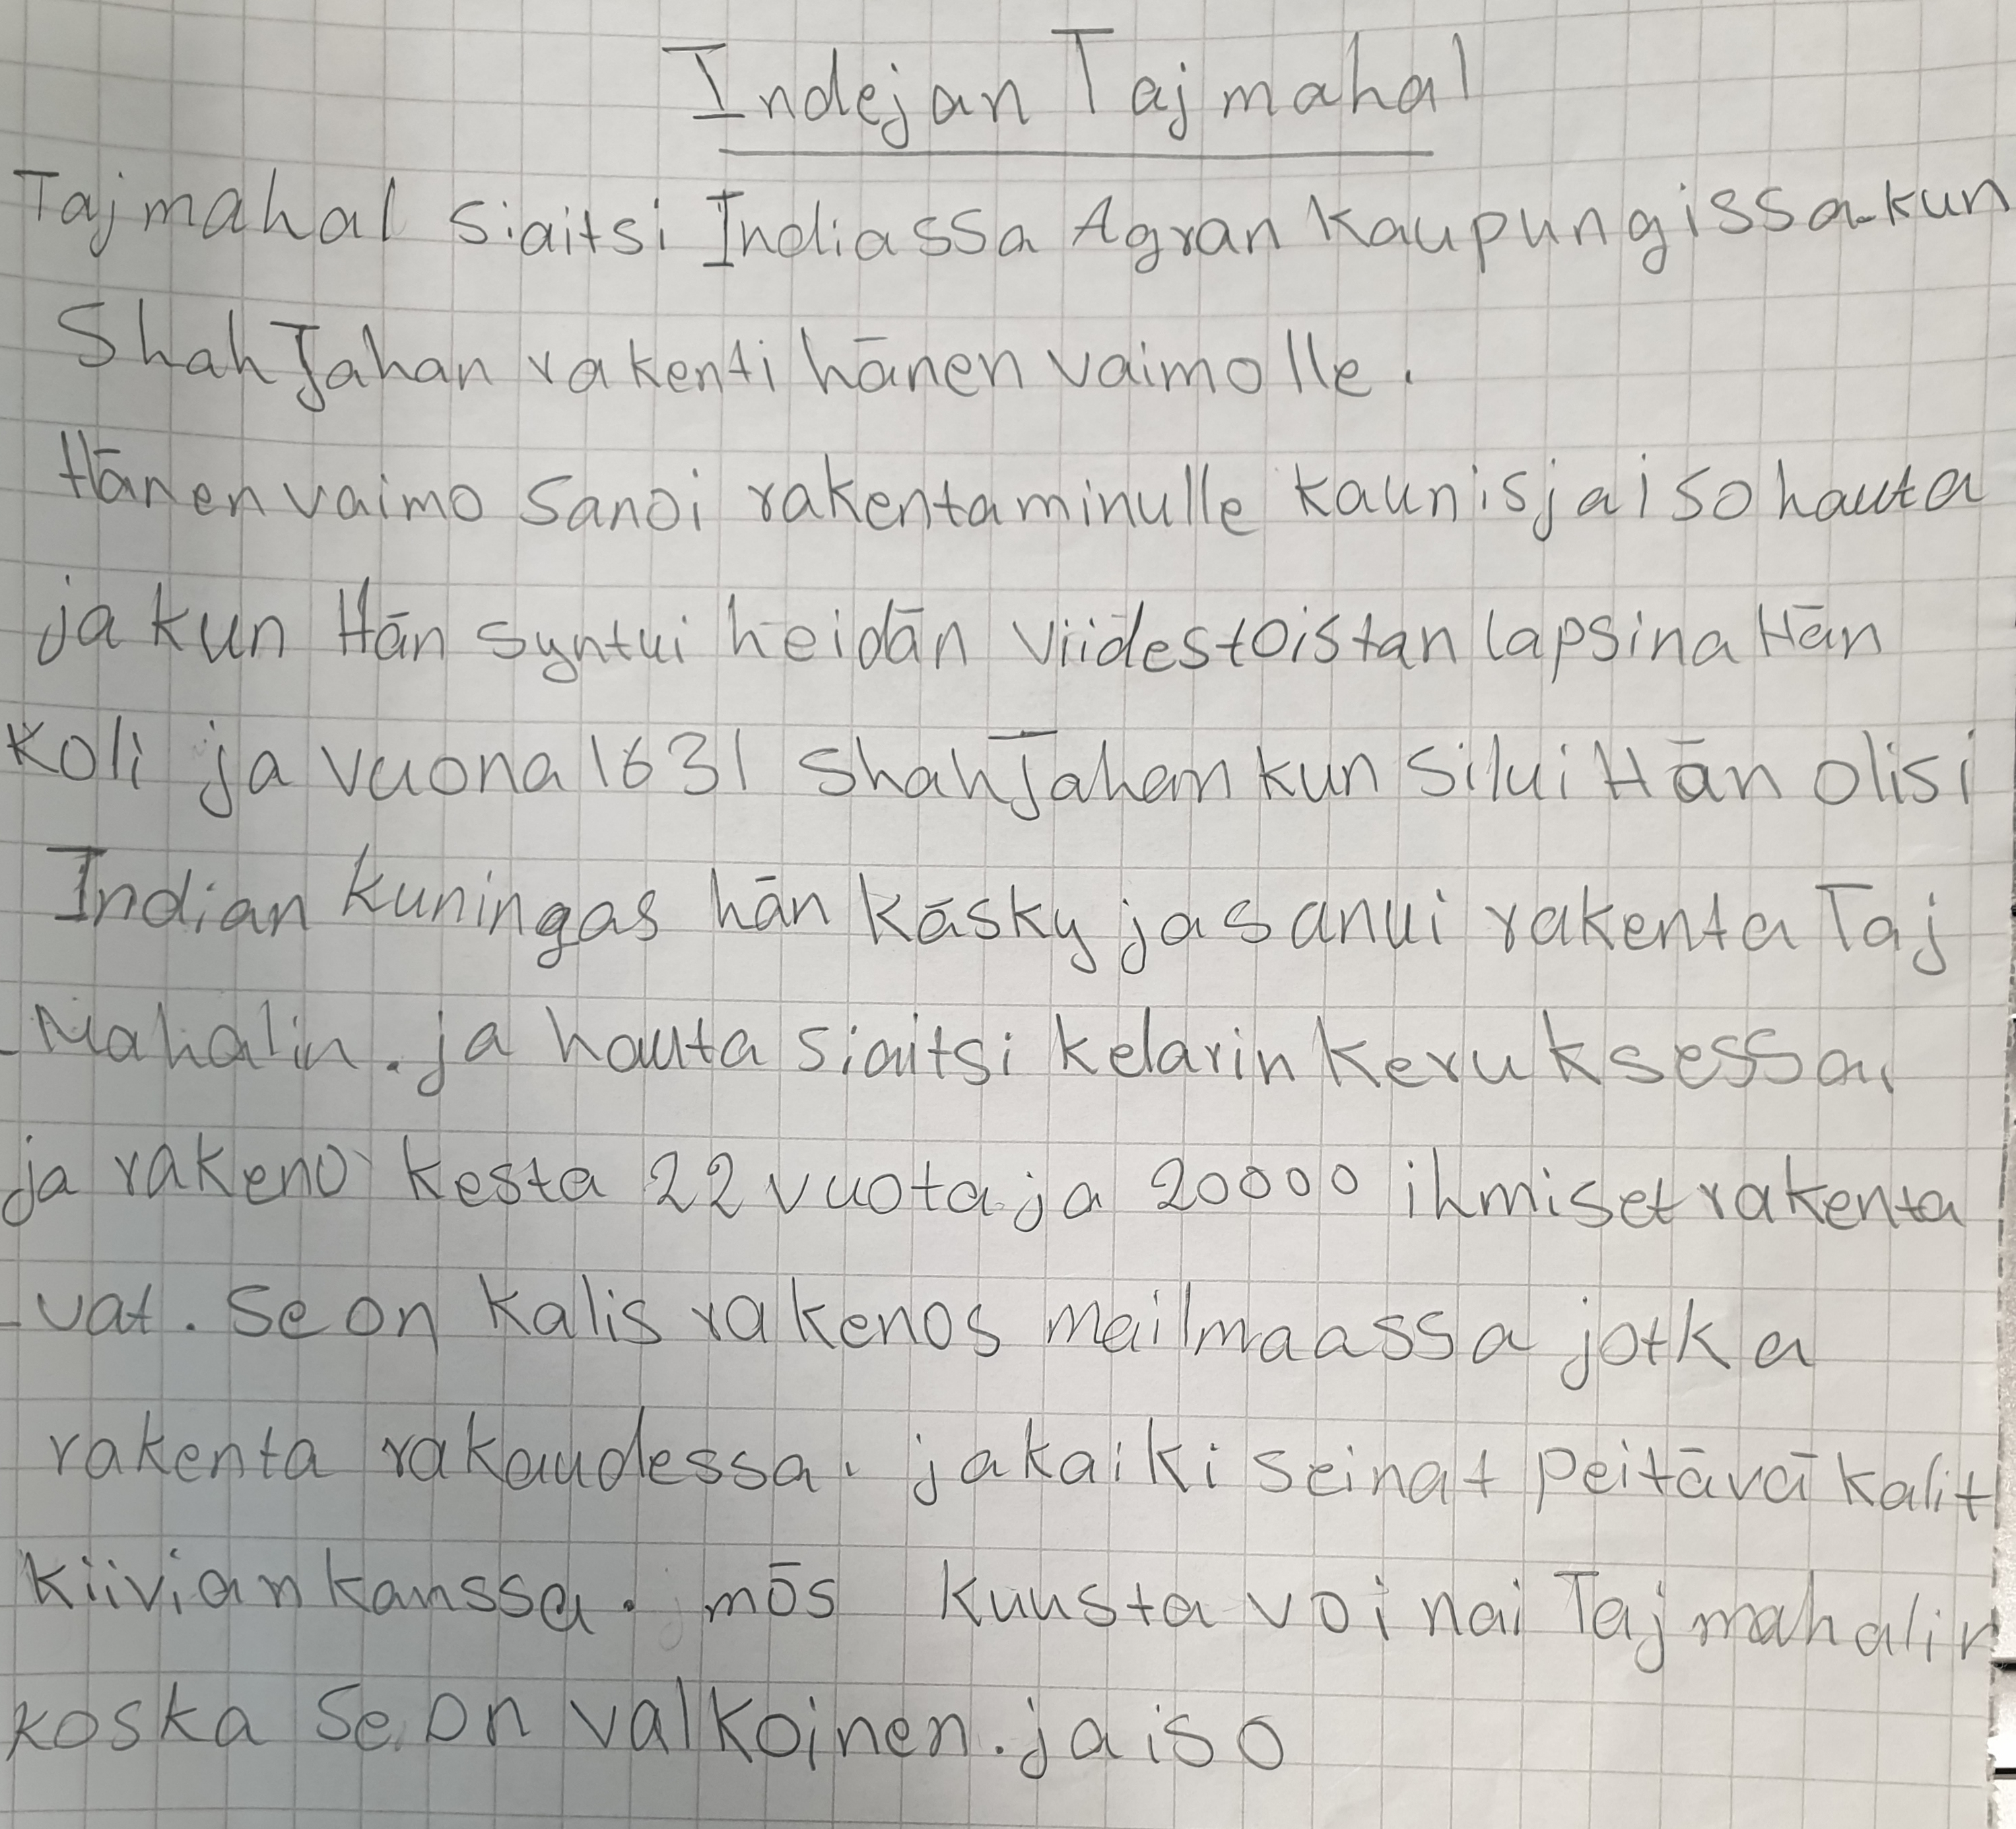 Indejan Tajmahal
Tajmahal siaitsi Indiassa Agran kaupungissa-kun
Shah Jahan rakenti hänen vaimolle.
Hänen vaimo sanoi rakentaminulle kaunisja iso hauta
ja kun Hän syntui heidän viidestoistan lapsina Hän
koli ja vuona 1631 shah Jahan kun silui Hän olisi
Indian kuningas hän käsky ja sanui rakenta Taj
-Mahalin. ja hauta siaitsi kelarin keruksessa,
ja rakeno kesta 22 vuotaja 20000 ihmiset rakenta
-vat. Se on kalis rakenos mailmaassa jotka
rakenta rakaudessa. jakaiki seinat peitävä kalit
kiivian kanssa. mös kuusta voi nai Tajmahalin
koska se on valkoinen. ja iso